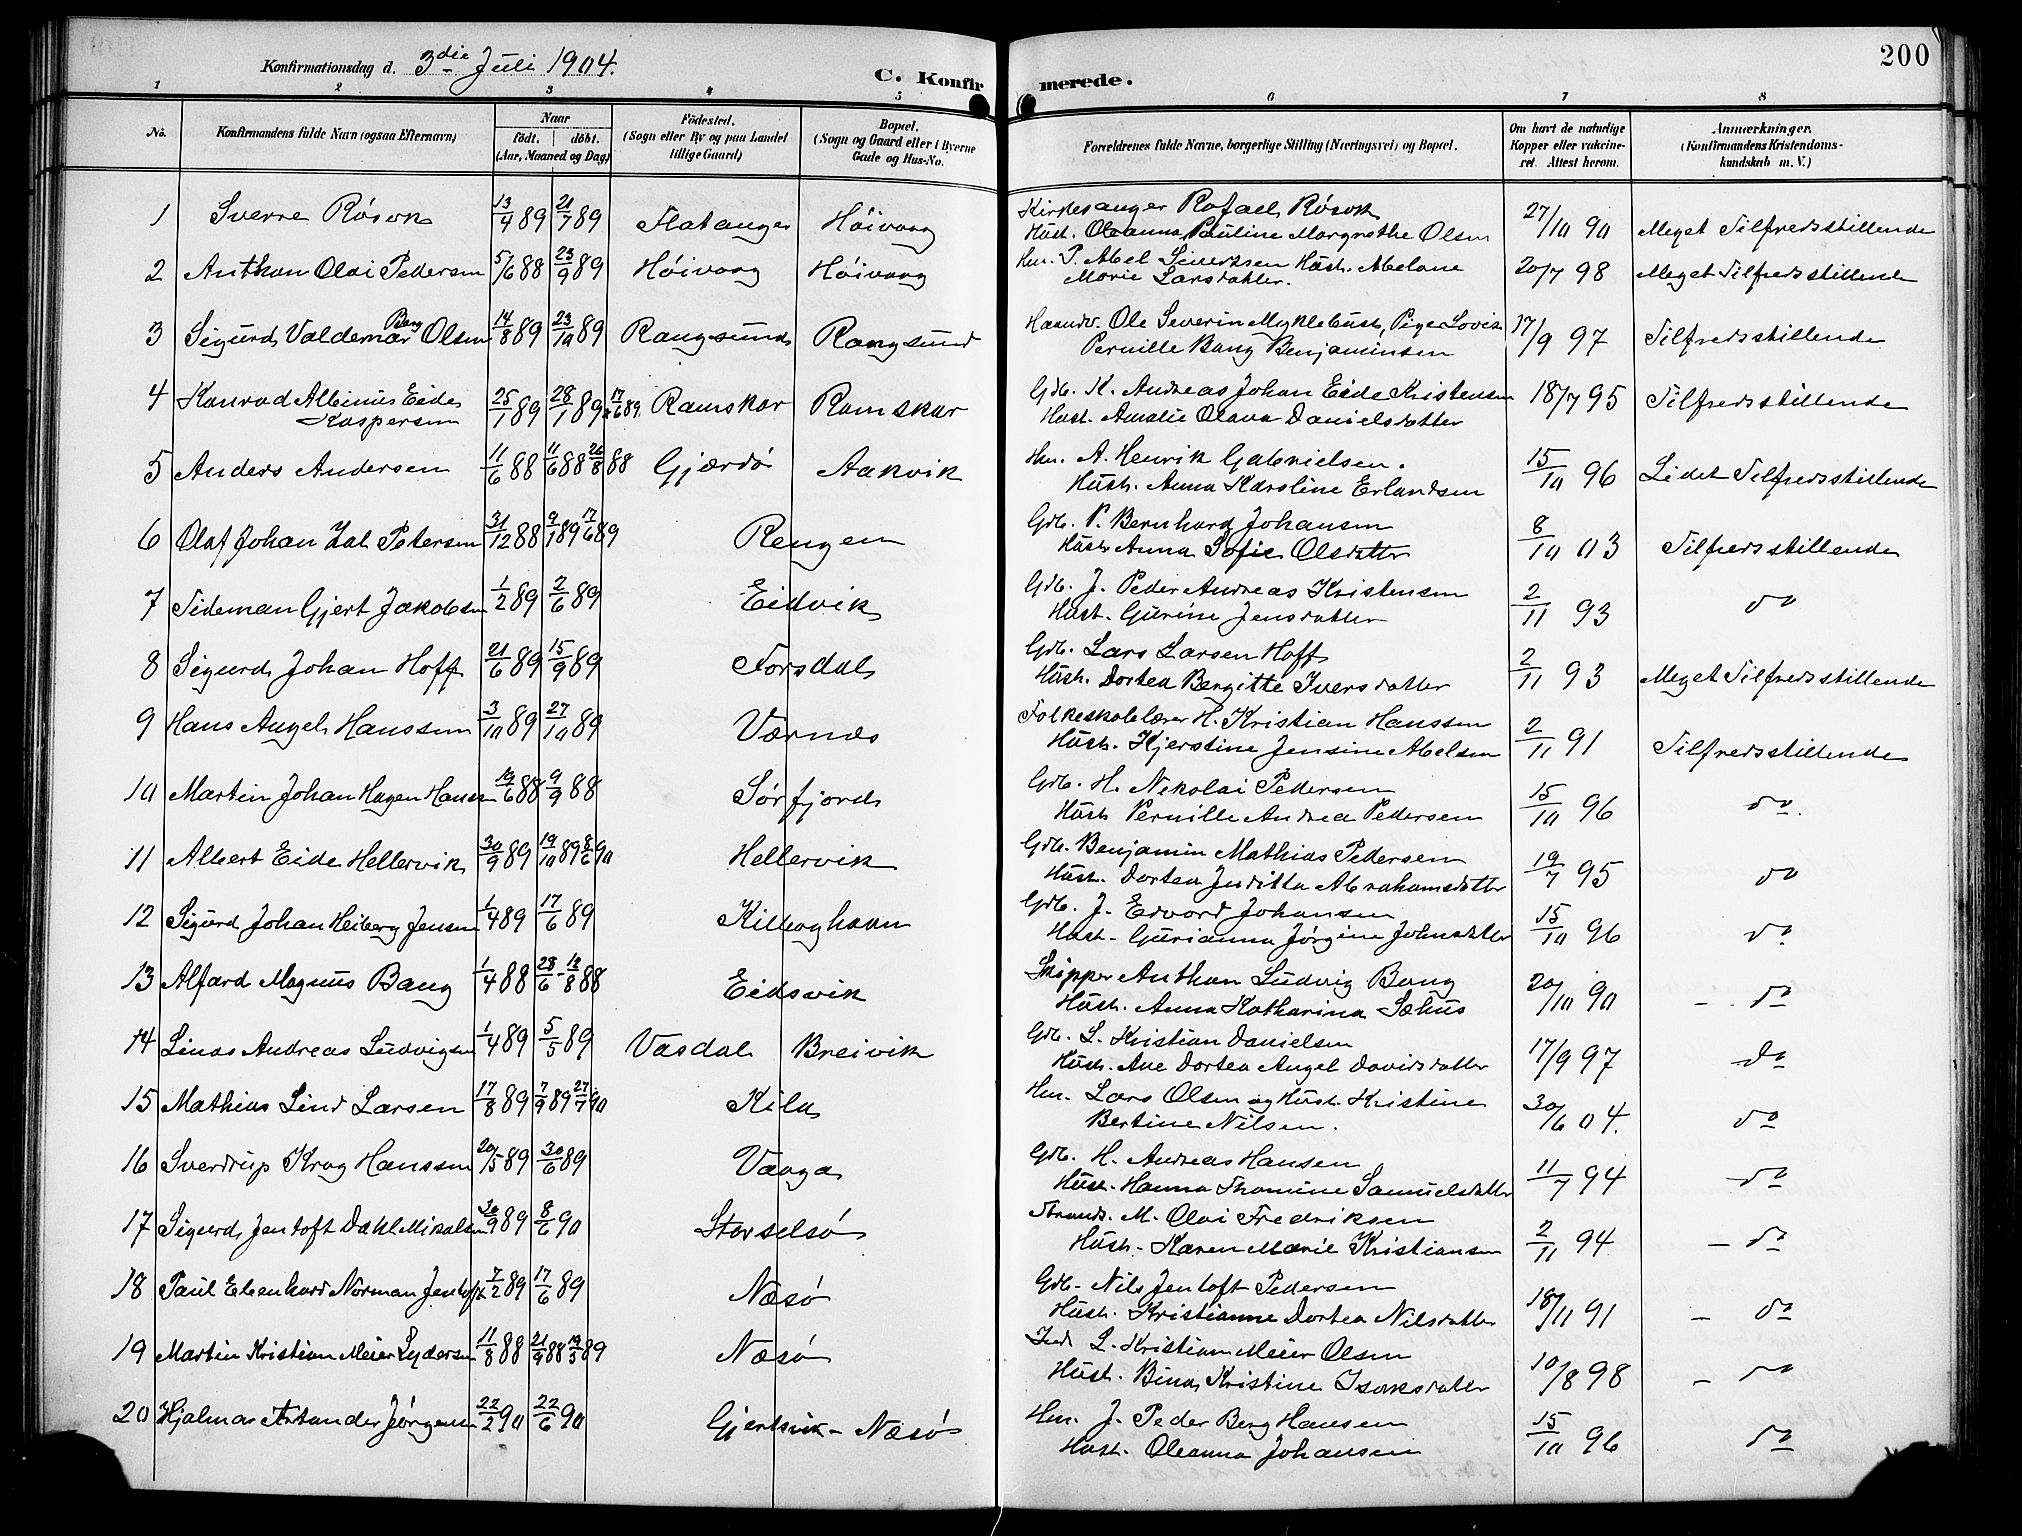 200
Konfirmationsdag d. 3die Juli 1904.
C. Konfirmerede.
1 2 3 4 5 6 7 8
No.
Konfirmandens fulde Navn (ogsaa Efternavn)
Naar
født. døbt.
(Aar, Maaned og Dag)
Fødested.
(Sogn eller By og paa Landet
tillige Gaard)
Bopæl.
(Sogn og Gaard eller i Byerne
Gade og Hus-No.
Forældrenes fulde Navne, borgerlige Stilling (Næringsvei) og Bopæl.
Om havt de naturlige
Kopper eller vakcine-
ret. Attest herom.
Anmærkninger.
(Konfirmandens Kristendoms-
kundskab m. V.)
1 Sverre Rösok 13/4 89 21/7 89 Flatanger Höivaag Kirkesanger Rafael Rösok 27/10 90 Meget Tilfredsstillende
Hust. Oleanna Pauline Margrethe Olsen
2 Anthon Olai Pedersen 5/6 88 23/9 89 Höivaag Höivaag Hm. P. Abel Sivertsen Hust. Abelone 20/7 98 Meget Tilfredsstillende
Marie Larsdatter.
3 Sigurd Valdemar Berg Olsen 14/8 89 23/10 89 Rangsund Rangsund Haandv. Ole Severin Myklebust, Pige Lovise 17/9 97 Tilfredsstillende
Pernille Bang Benjaminsen
4 Konrad Albinus Eide 25/1 89 28/1 89 17/6 89. Ramskar Ramskar Gdb. K. Andreas Johan Eide Kristensen 18/7 95 Tilfredsstillende
Kaspersen Hust. Amalie Olava Danielsdatter
5 Anders Andersen 11/6 88 11/6 88 26/8 88 Gjærdö Aakvik Hm. A. Henrik Gabrielsen. 15/10 96 Lidet Tilfredsstillende
Hust. Anna Karoline Erlandsen
6 Olaf Johan Zal Petersen 31/12 88 9/1 89 17/6 89 Rengen Gdb. P. Bernhard Johansen 8/10 03 Tilfredsstillende
Hust. Anna Sofie Olsdatter
7 Tideman Gjert Jakobsen 1/2 89 2/6 89 Eidvik Gdb. J. Peder Andreas Kristensen 2/11 93 do
Hust. Gurine Jensdatter
8 Sigurd Johan Hoff 21/6 89 15/9 89 Forsdal Gdb. Lars Larsen Hoff 2/11 93 Meget Tilfredsstillende
Hust. Dortea Bergitte Iversdatter
9 Hans Angel Hanssen 3/10 89 27/10 89 Værnes Folkeskolelærer H. Kristian Hanssen 2/11 91 Tilfredsstillende
Hust. Kjerstine Jensine Abelsen
10 Martin Johan Hagen Hansen 19/6 88 9/9 88 Sörfjord Gdb. H. Nikolai Pedersen 15/10 96 do.
Hust. Pernille Andrea Pedersen
11 Albert Eide Hellervik 30/9 89 19/10 89 8/6 90 Hellervik Gdb. Benjamin Mathias Pedersen 19/7 95 do
Hust. Dortea Juditta Abrahamsdatter
12 Sigurd Johan Heiberg Jensen 1/4 89 17/6 89 Kilboghavn Gdb. J. Edvard Johansen 15/10 96 do
Hust. Gurianna Jörgine Johnsdatter
13 Alfard Magnus Bang 1/4 88 28/6 - 12/8 88 Eidsvik Skipper Anthon Ludvig Bang 20/10 90 - do
Hust. Anna Katharina Sæhus
14 Linas Andreas Ludvigsen 1/4 89 5/5 89 Vasdal Breivik Gdb. L. Kristian Danielsen 17/9 97 do
Hust. Ane Dortea Angel Davidsdatter
15 Mathias Lind Larsen 17/8 89 7/9 89 27/7 90 Kila Hm. Lars Olsen og Hust. Kristine 30/6 04. do
Bertine Nilsen.
16 Sverdrup Krog Hanssen 20/5 89 30/6 89 Vaaga Gdb. H. Andreas Hansen 11/7 94 do
Hust. Hanna Thomine Samuelsdatter
17 Sigurd Jentoft Dahl Mikalsen 30/9 89 8/6 90 Storselsö Strands. M. Olai Fredriksen 2/11 94 - do
Hust. Karen Marie Kristiansen
18 Paul Elsenhard Norman Jentoft 7/2 89 17/6 89 Næsö Gdb. Nils Jentoft Pedersen 18/11 91 - do
Hust. Kristianne Dortea Nilsdatter
19 Martin Kristian Meier Lydersen 11/8 88 21/9 88 19/5 89 Næsö Ind. L. Kristian Meier Olsen 10/8 98 - do
Hust. Bina Kristine Isaksdatter
20 Hjalmar Artander Jörgensen 22/2 90 22/6 90 Gjertsvik - Næsö Hm. J. Peder Berg Hansen 15/10 96 do
Hust. Oleanna Johansen